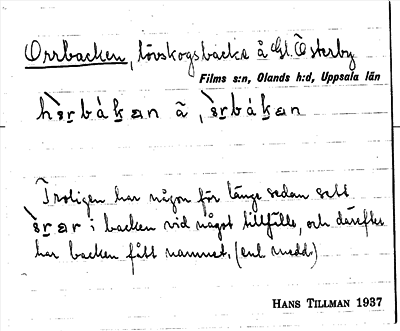 Orrbacken, lövskogsbacke å Gl. Österby
Films s:n, Olands h:d, Uppsala län
Troligen har någon för länge sedan sett
i backen vid något tillfälle, och därefter
har backen fått namnet. (enl. medd.)
HANS TILLMAN 1937